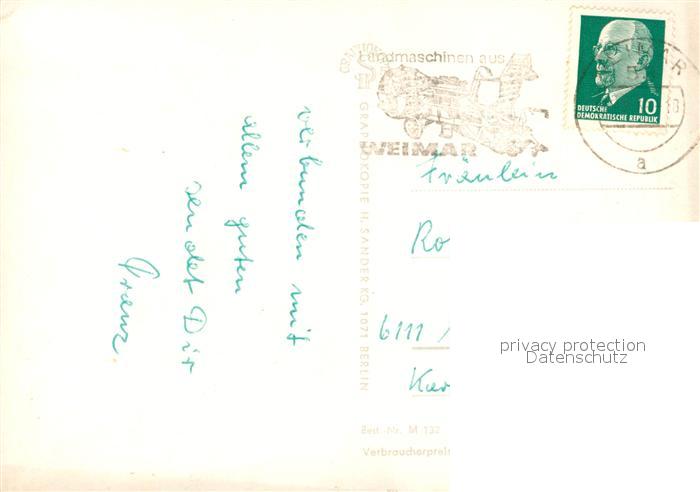 Landmaschinen aus
WEIMAR
DEUTSCHE
DEMOKRATISCHE REPUBLIK
10
a
verbunden mit
allem guten
sendet Dir
Franz.
GRAPHOKOPIE H. SANDER KG, 1071 BERLIN
Fräulein
Ro
6111
privacy protection
Datenschutz
Best.-Nr. M 132
Verbraucherpreis